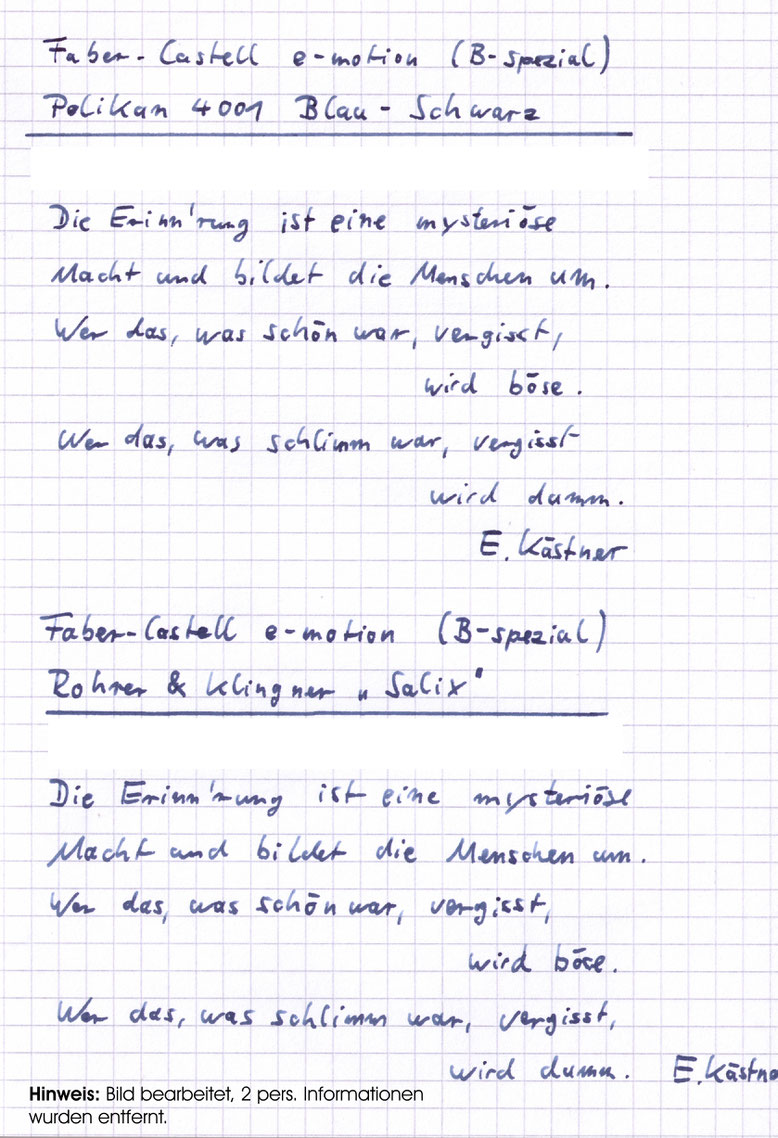 Faber-Castell e-motion (B-spezial)
Pelikan 4001 Blau-Schwarz
Die Erinn'rung ist eine mysteriöse
Macht und bildet die Menschen um.
Wer das, was schön war, vergisst,
wird böse.
Wer das, was schlimm war, vergisst
wird dumm.
E. Kästner
Faber-Castell e-motion (B-spezial)
Rohrer & Klingner „Salix"
Die Erinn'rung ist eine mysteriöse
Macht und bildet die Menschen um.
Wer das, was schön war, vergisst,
wird böse.
Wer das, was schlimm war, vergisst,
wird dumm. E. Kästne
Hinweis: Bild bearbeitet, 2 pers. Informationen
wurden entfernt.